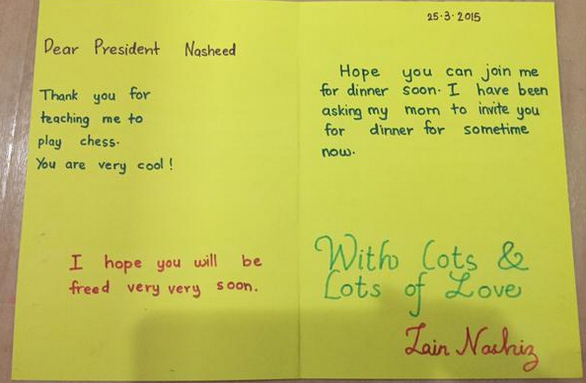 Dear President Nasheed
Thank you for
teaching me to
play chess.
You are very cool!
I hope you will be
freed very very soon.
25.3.2015
Hope you can join me
for dinner soon. I have been
asking my mom to invite you
for dinner for sometime
now.
With Lots &
Lots of Love
Zain Nashiz